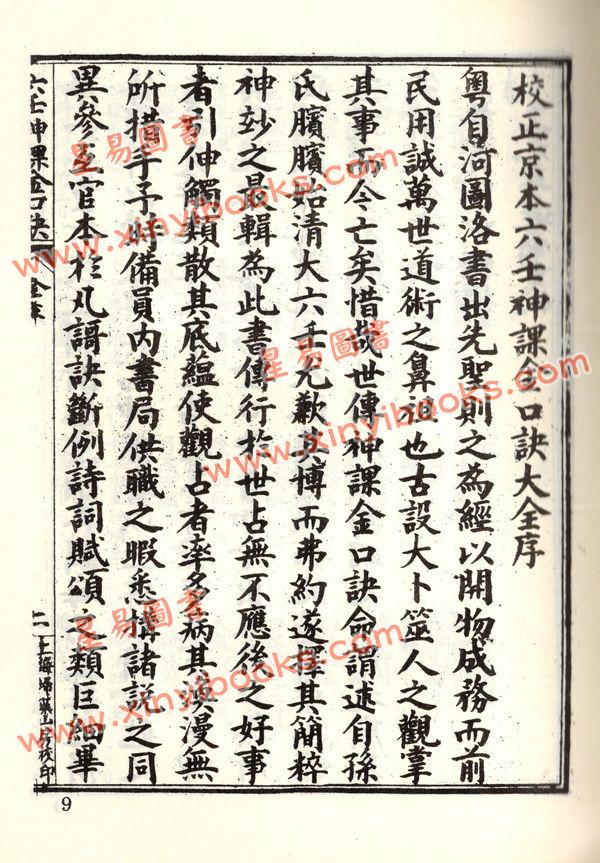 校正京本六壬神課金口訣大全序
粵自河圖洛書出先聖則之為經以開物成務而前
民用誠萬世道術之鼻祖也古設大卜筮人之觀掌
其事而今亡矣惜哉世傳神課金口訣命謂述自孫
氏臏臏始清大六壬尤歉其博而弗約遂擇其簡粹
神妙之最輯為此書傳行於世占無不應後之好事
者引伸觸類散其底蘊使觀占者率多病其渙漫無
所措手予時備員內書局供職之暇悉摶諸說之同
異參互官本於凡語訣斷例詩詞賦頌之類巨細畢
六壬神課金口訣 全序 二 上海埽葉山房校印
9
星易圖書
www.xinyibooks.com
星易圖書
www.xinyibooks.com
星易圖書
www.xinyibooks.com
星易圖書
www.xinyibooks.com